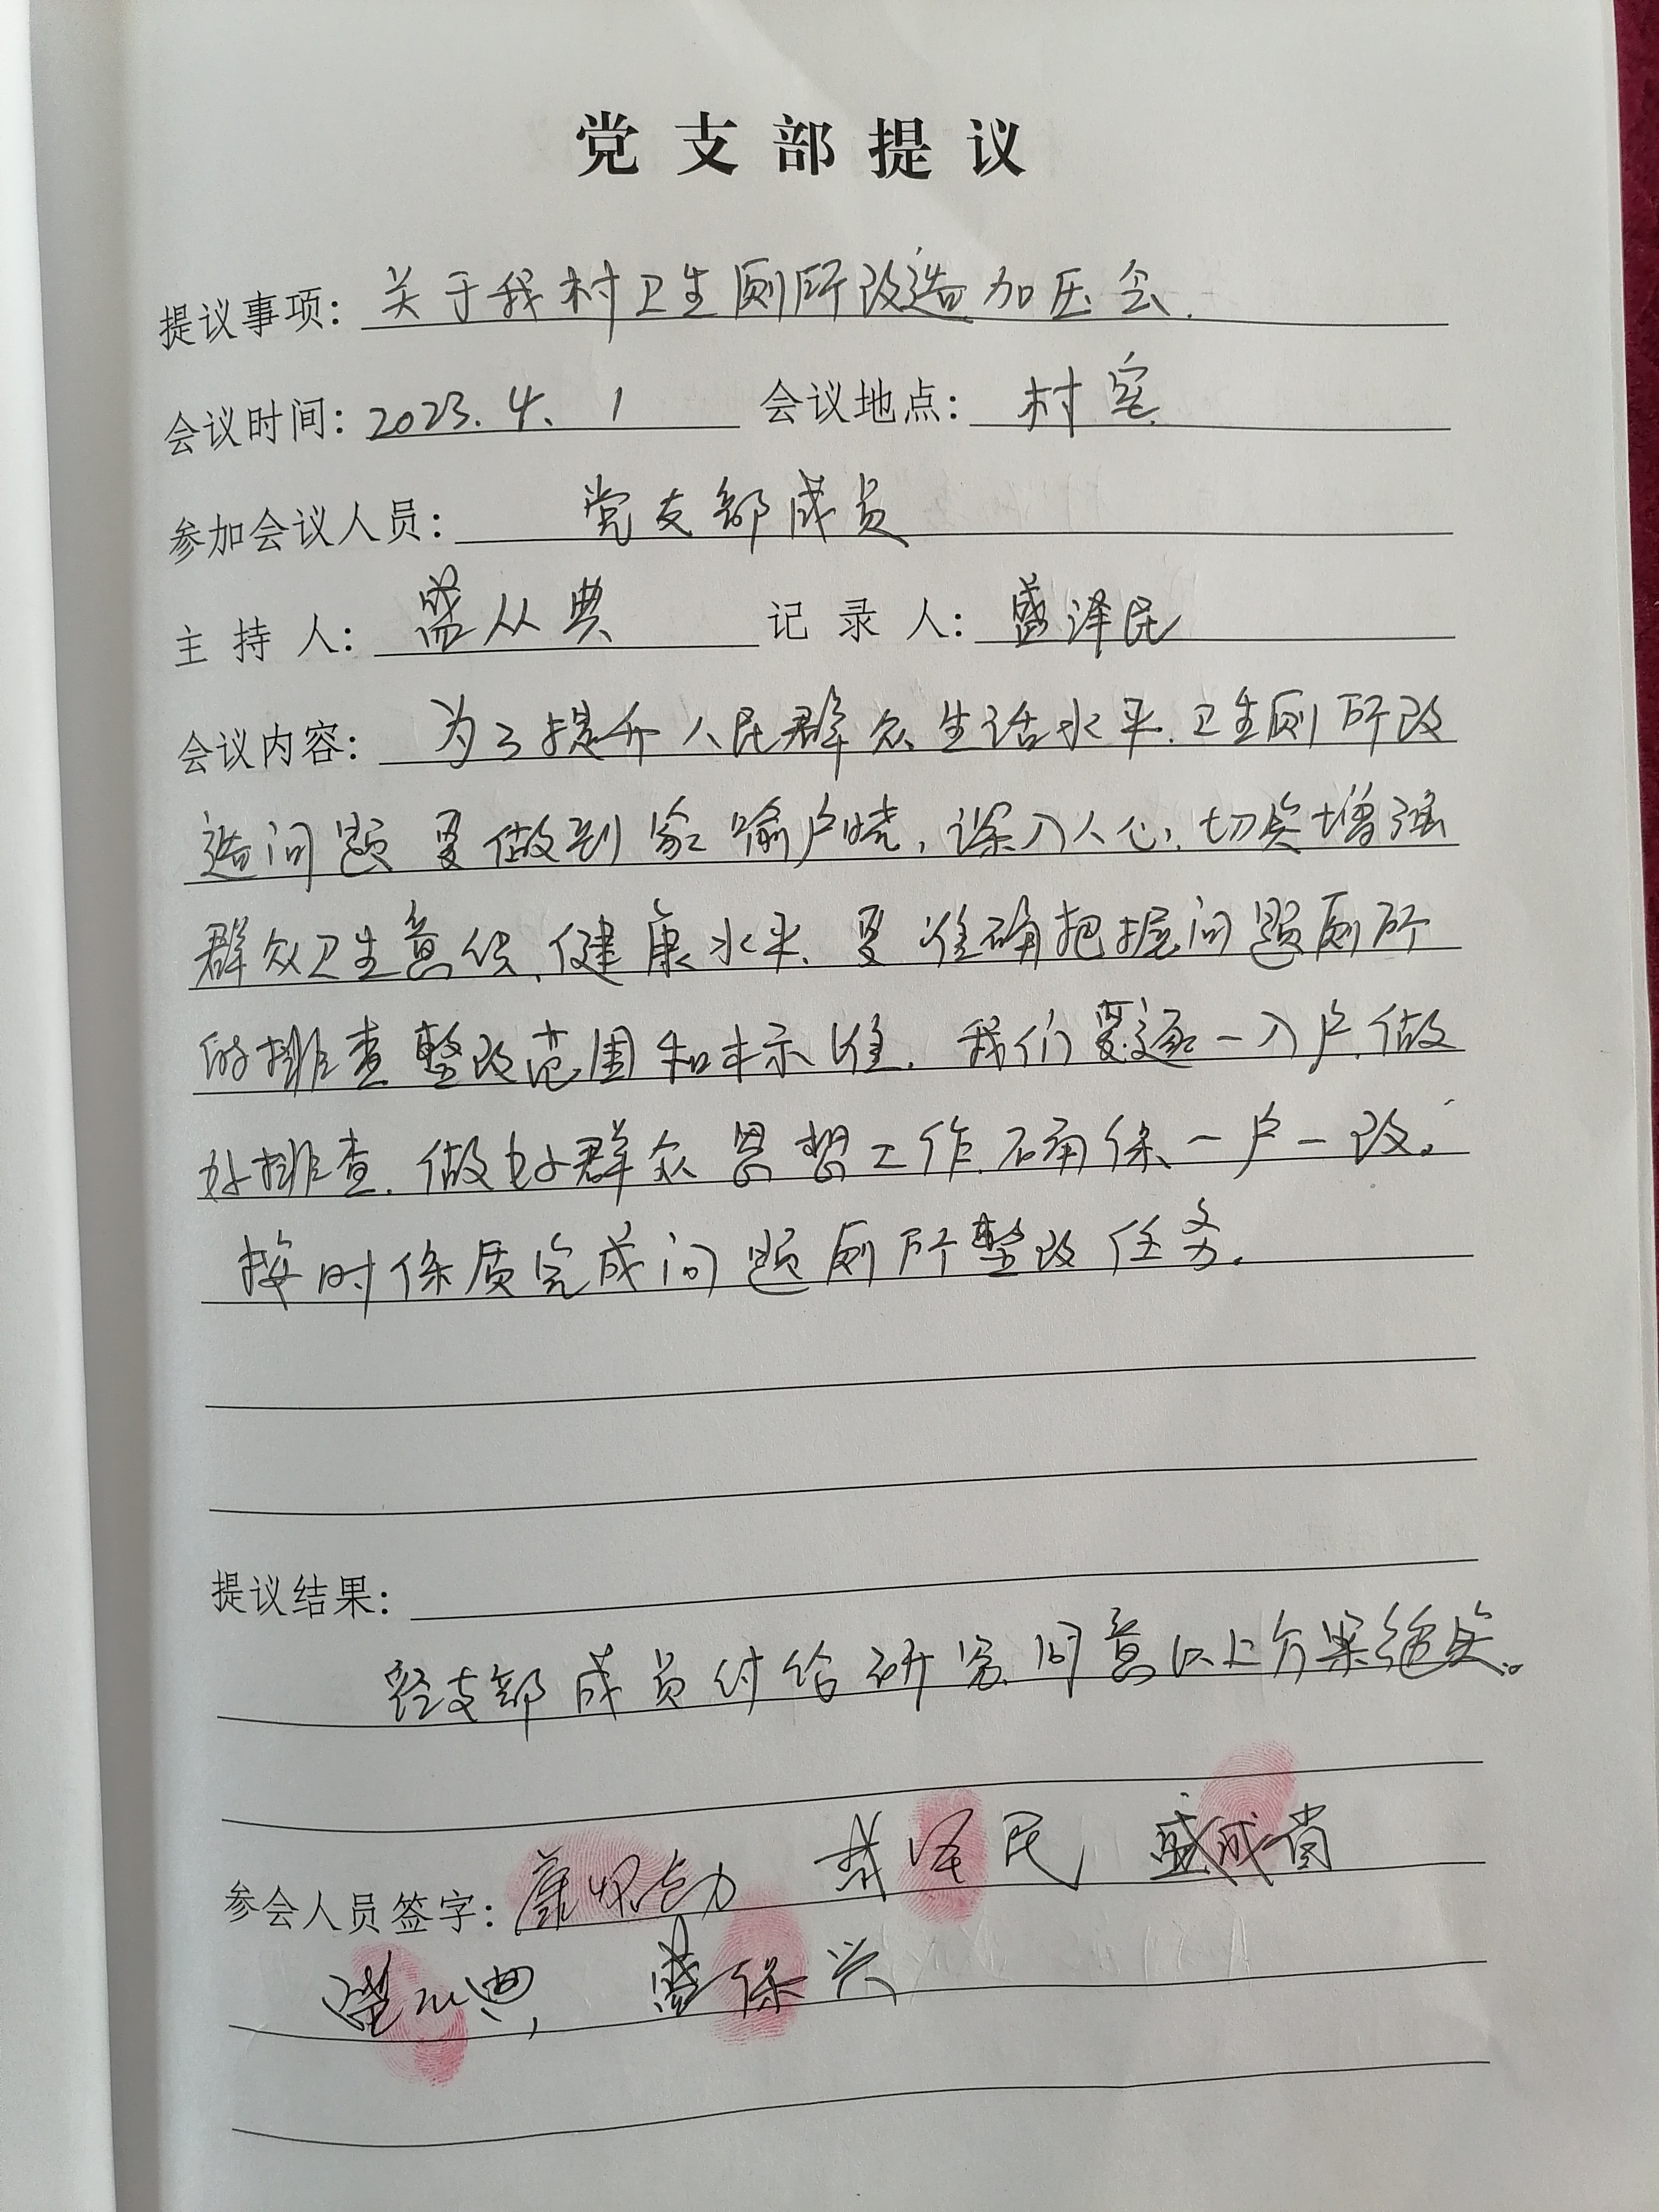 党支部提议
提议事项：关于我村卫生厕所改造加压会.
会议时间：2023.4.1 会议地点：村室
参加会议人员：党支部成员
主持人：盛从典 记录人：盛泽民
会议内容：为了提升人民群众生活水平.卫生厕所改
造问题要做到家喻户晓，深入人心，切实增强
群众卫生意识、健康水平.要准确把握问题厕所
的排查整改范围和标准.我们要逐一入户.做
好排查.做好群众思想工作.确保一户一改。
按时保质完成问题厕所整改任务.
提议结果：
经支部成员讨给研究同意以上方案
参会人员签字： 泽民 盛成
从典， 盛保兴